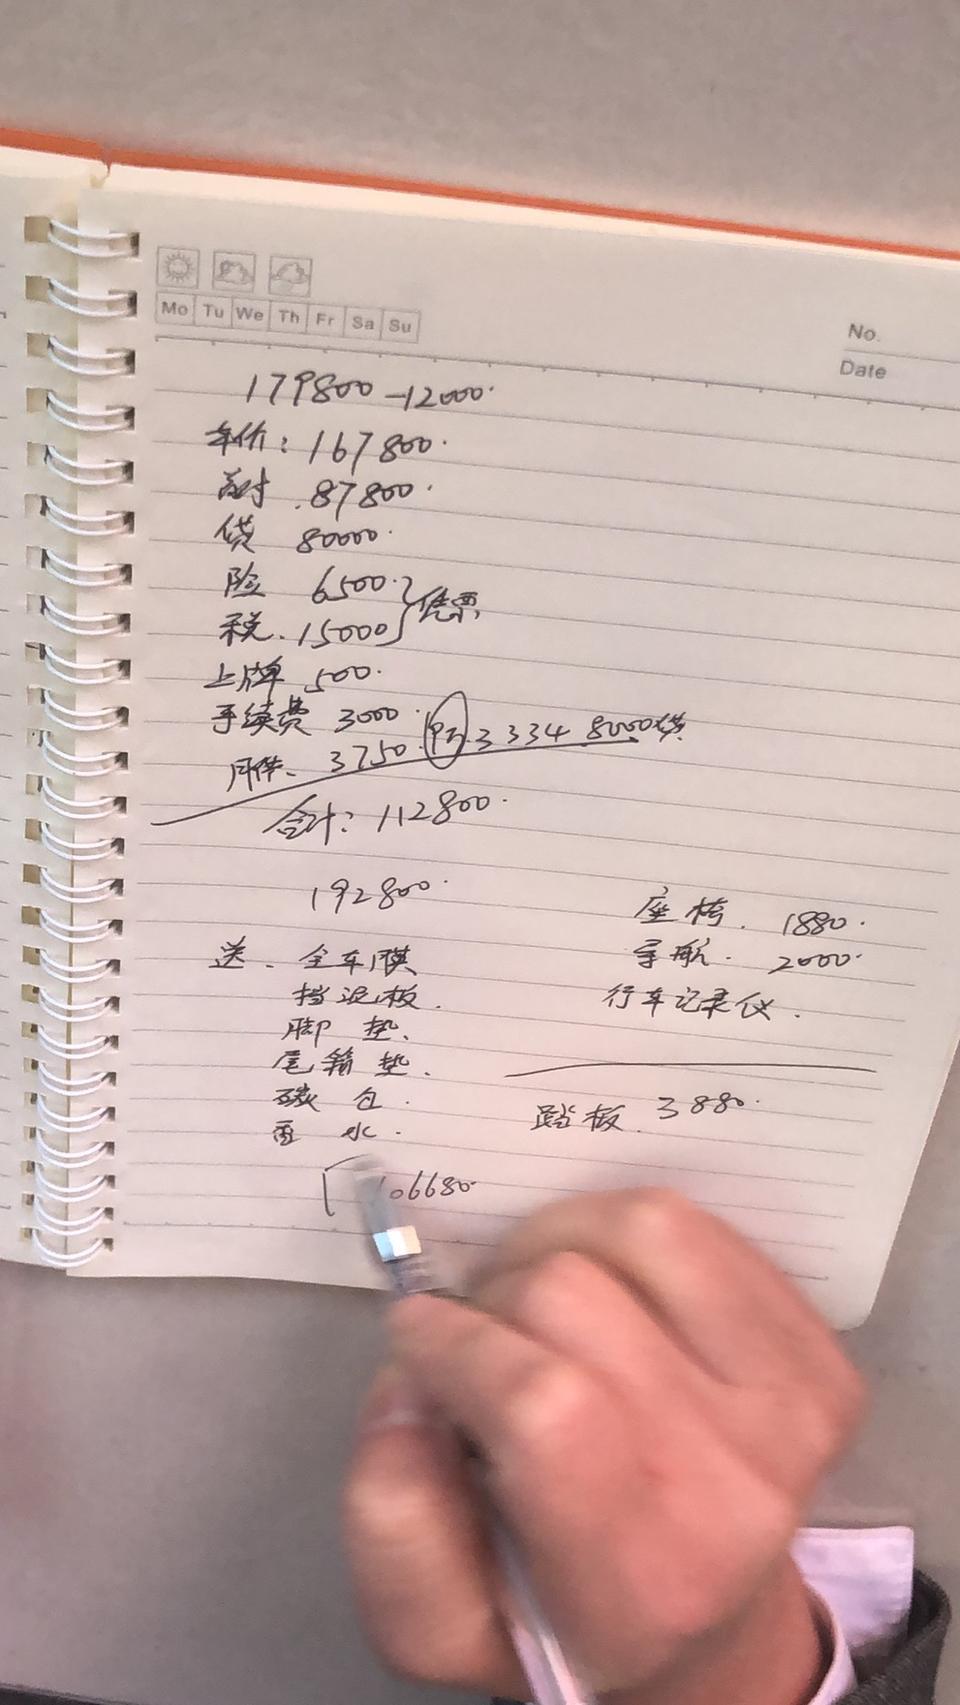 Mo Tu We Th Fr Sa Su
No.
Date
179800-12000.
车价：167800.
首付.87800.
贷 80000.
险 6500.
税.15000 } 凭票
上牌 500.
手续费 3000.
月供.3750. 3334 8000贷
合计：112800.
192800.
送.全车膜
挡泥板.
脚垫.
尾箱垫.
碳包.
香水.
座椅.1880.
导航.2000.
行车记录仪.
踏板.3880.
106680.